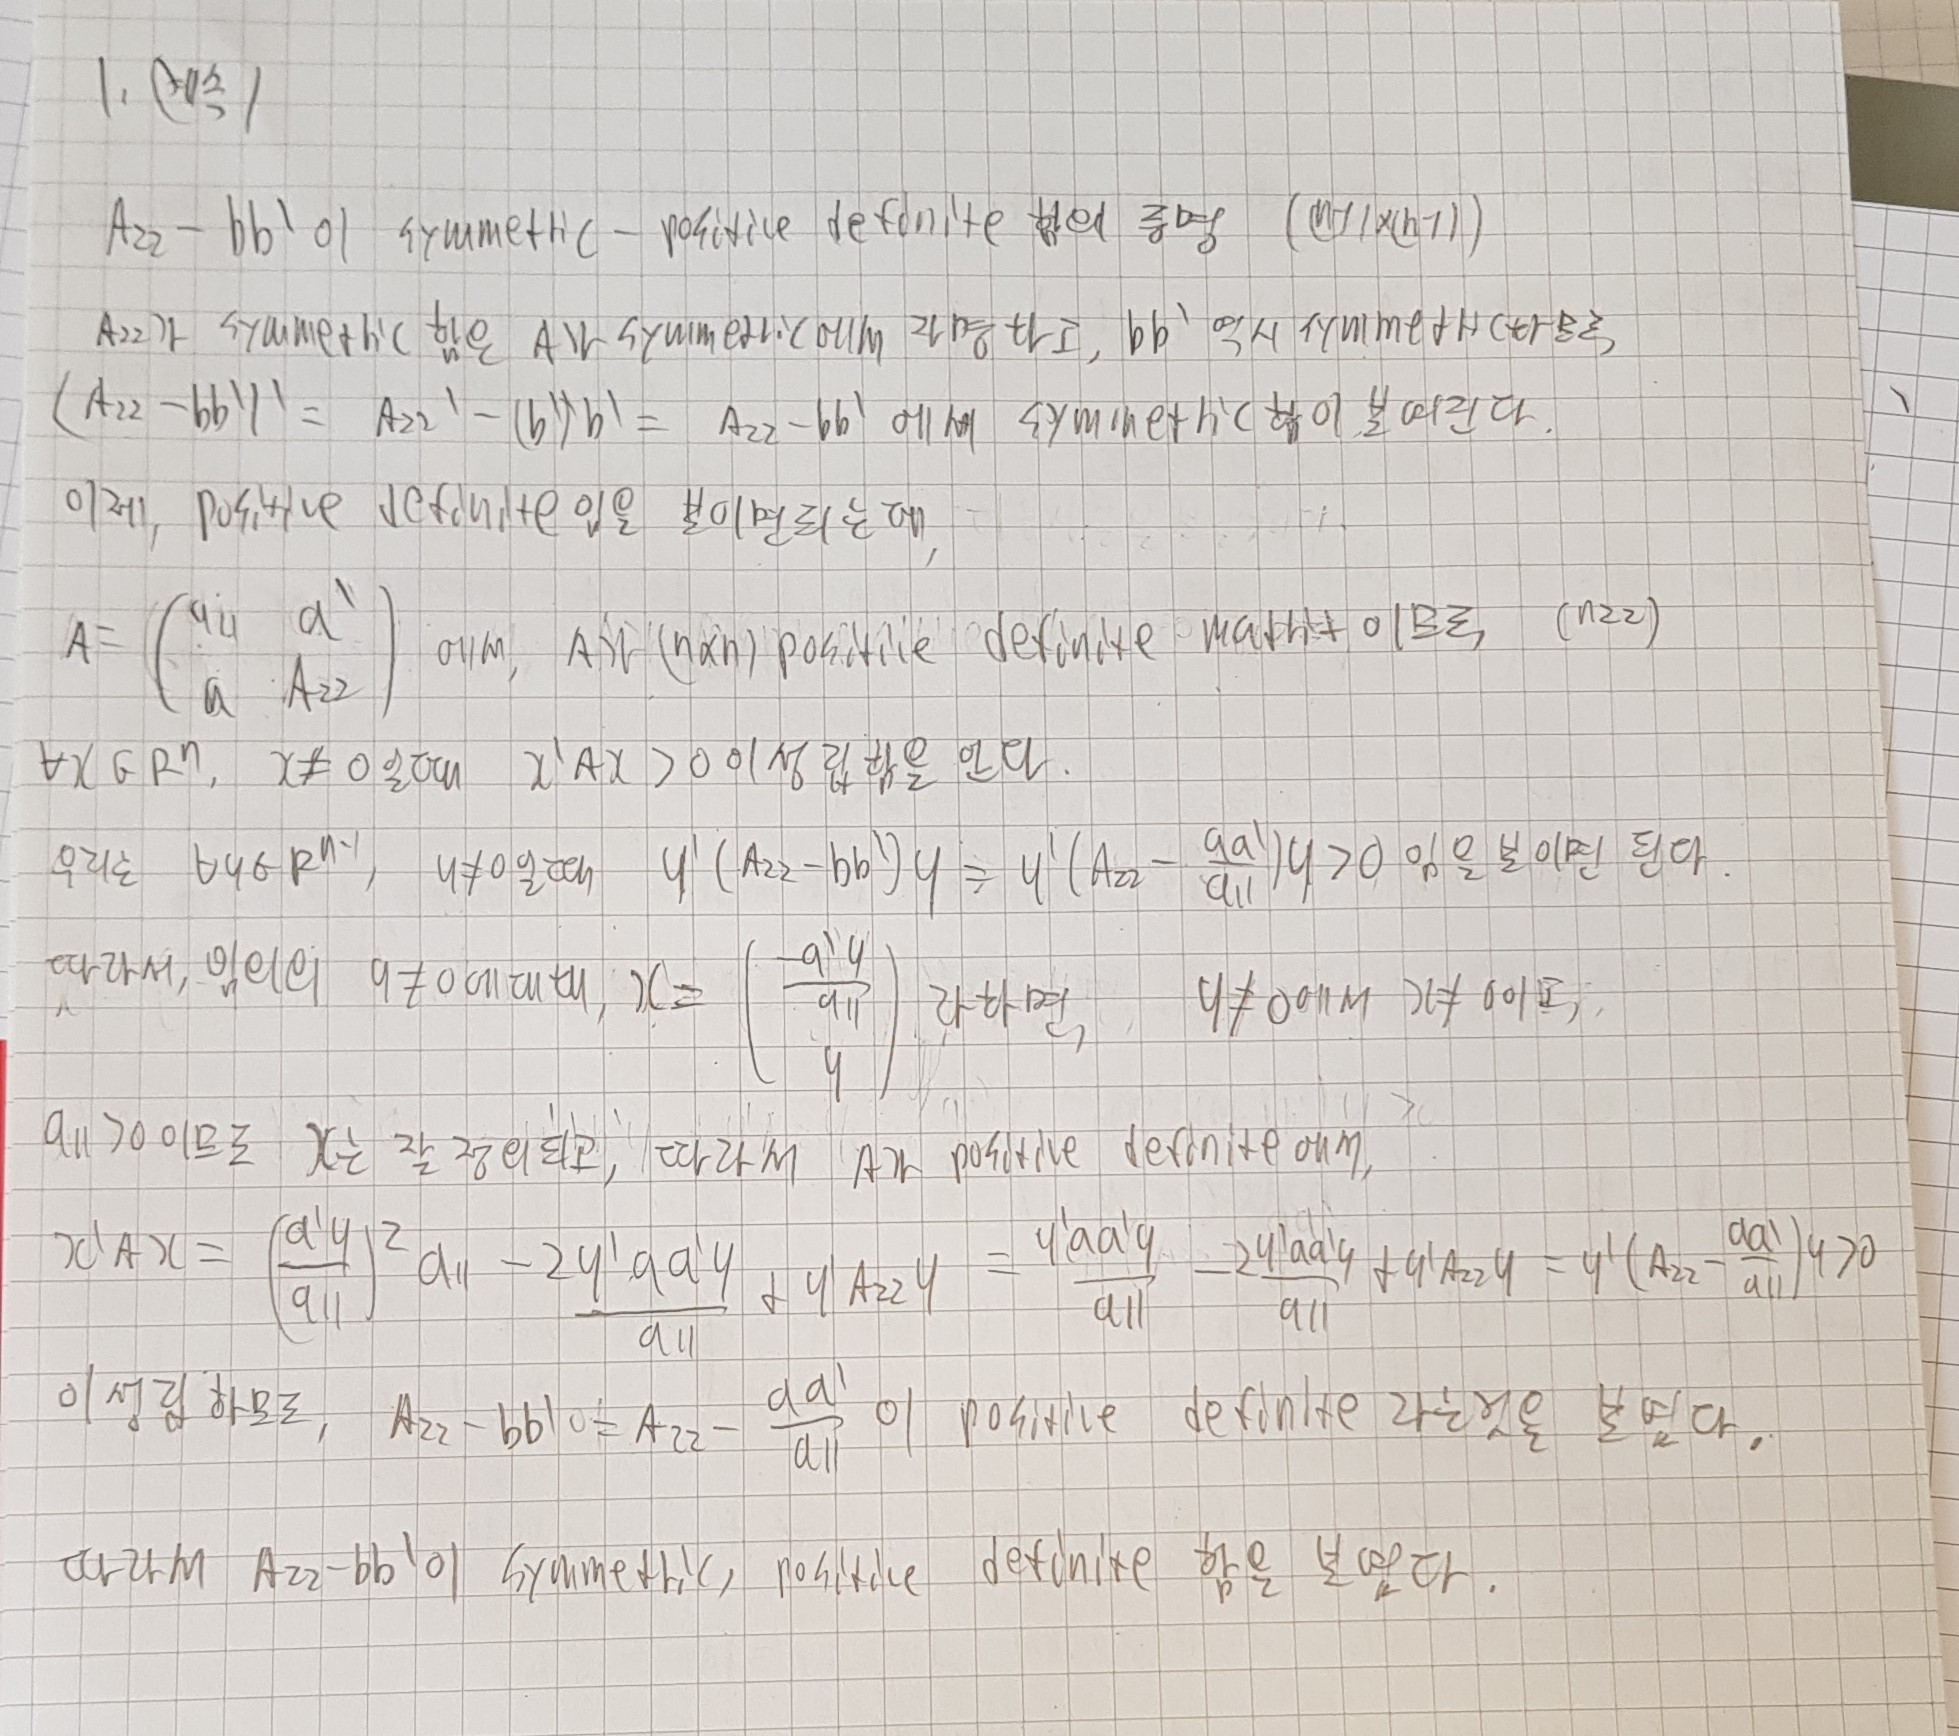 1. (계속)
A₂₂ - bb' 이 symmetric - positive definite 함의 증명 ((n-1)×(n-1))
A₂₂가 symmetric 함은 A가 symmetric에서 자명하고, bb' 역시 symmetric하므로,
(A₂₂ - bb')' = A₂₂' - (b')'b' = A₂₂ - bb' 에서 symmetric함이 보여진다.
이제, positive definite임을 보이면 되는데,
A = ( a₁₁ a' ; a A₂₂ ) 에서, A가 (n×n) positive definite matrix 이므로, (n≥2)
∀x∈ℝⁿ, x≠0일때 x'Ax > 0 이 성립함을 안다.
우리는 ∀y∈ℝⁿ⁻¹, y≠0일때 y'(A₂₂ - bb')y = y'(A₂₂ - aa'/a₁₁)y > 0 임을 보이면 된다.
따라서, 임의의 y≠0에 대해, x = ( -a'y/a₁₁ ; y ) 라하면, y≠0에서 x≠0이고,
a₁₁>0 이므로 x는 잘 정의되고, 따라서 A가 positive definite에서,
x'Ax = (a'y/a₁₁)² a₁₁ - 2y'aa'y/a₁₁ + y'A₂₂y = y'aa'y/a₁₁ - 2y'aa'y/a₁₁ + y'A₂₂y = y'(A₂₂ - aa'/a₁₁)y > 0
이 성립 하므로, A₂₂ - bb' = A₂₂ - aa'/a₁₁ 이 positive definite 라는것을 보였다.
따라서 A₂₂ - bb' 이 symmetric, positive definite 함을 보였다.